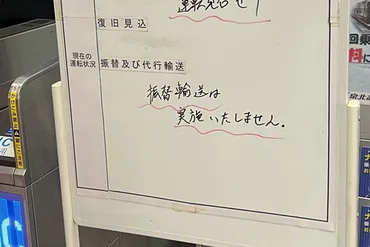 運転見合せ
復旧見込
現在の
運転状況
振替及び代行輸送
振替輸送は
実施いたしません。